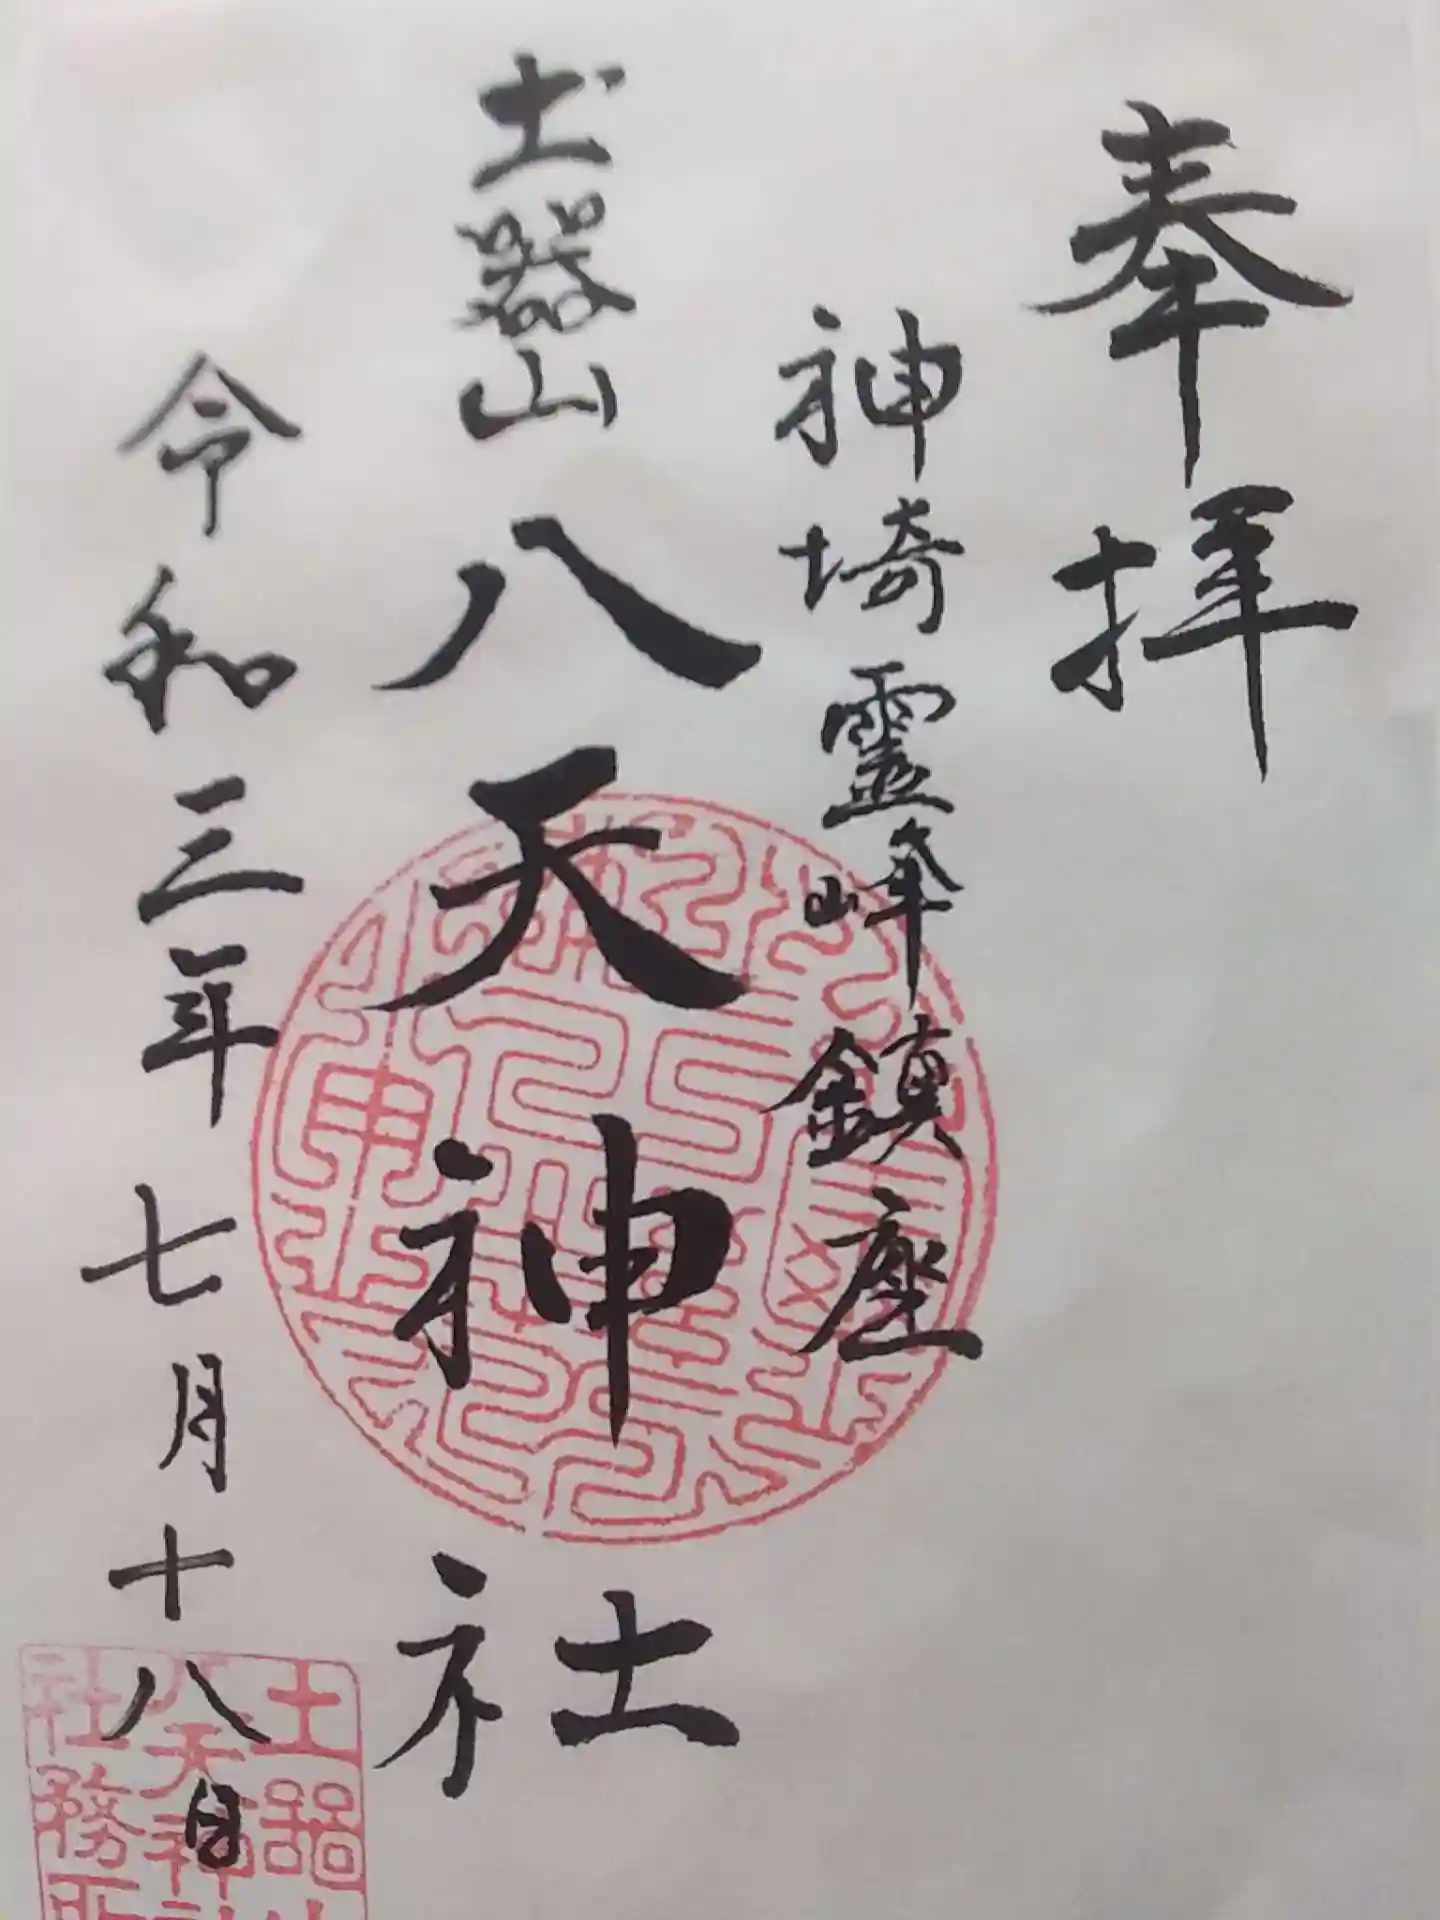 奉拝
神埼霊峰鎮座
土器山八天神社
令和三年七月十八日
土器山
八天神社
社務所